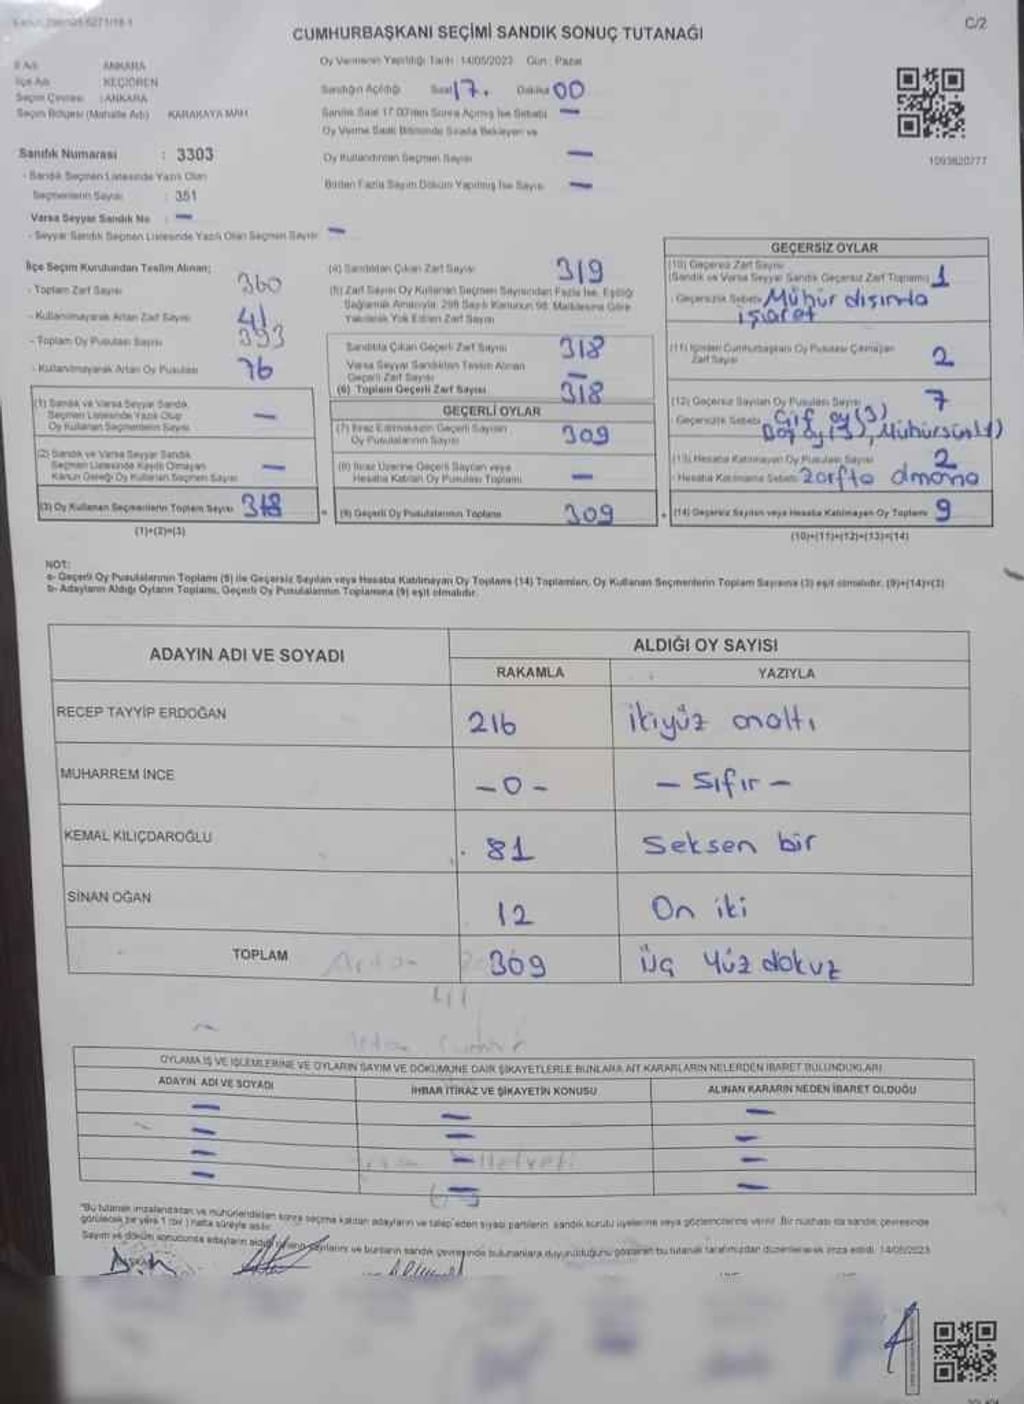 C/2
CUMHURBAŞKANI SEÇİMİ SANDIK SONUÇ TUTANAĞI
İl Adı : ANKARA
İlçe Adı : KEÇİÖREN
Seçim Çevresi : ANKARA
Seçim Bölgesi (Mahalle Adı) KARAKAYA MAH.
Sandık Numarası : 3303
- Sandık Seçmen Listesinde Yazılı Olan
Seçmenlerin Sayısı : 351
Varsa Seyyar Sandık No : —
- Seyyar Sandık Seçmen Listesinde Yazılı Olan Seçmen Sayısı : —
Oy Vermenin Yapıldığı Tarih : 14/05/2023 Gün : Pazar
Sandığın Açıldığı Saat 17. Dakika 00
Sandık Saat 17.00'den Sonra Açılmış İse Sebebi —
Oy Verme Saati Bitiminde Sırada Bekleyen ve
Oy Kullandırılan Seçmen Sayısı —
Birden Fazla Sayım Döküm Yapılmış İse Sayısı —
1093620777
İlçe Seçim Kurulundan Teslim Alınan;
- Toplam Zarf Sayısı 360
- Kullanılmayarak Artan Zarf Sayısı 41
- Toplam Oy Pusulası Sayısı 393
- Kullanılmayarak Artan Oy Pusulası 76
(1) Sandık ve Varsa Seyyar Sandık
Seçmen Listesinde Yazılı Olup
Oy Kullanan Seçmenlerin Sayısı —
(2) Sandık ve Varsa Seyyar Sandık
Seçmen Listesinde Kayıtlı Olmayan
Kanun Gereği Oy Kullanan Seçmen Sayısı —
(3) Oy Kullanan Seçmenlerin Toplam Sayısı 318
(1)+(2)=(3)
(4) Sandıktan Çıkan Zarf Sayısı 319
(5) Zarf Sayısı Oy Kullanan Seçmen Sayısından Fazla İse, Eşitliği
Sağlamak Amacıyla, 298 Sayılı Kanunun 98. Maddesine Göre
Yakılarak Yok Edilen Zarf Sayısı
Sandıkta Çıkan Geçerli Zarf Sayısı 318
Varsa Seyyar Sandıktan Teslim Alınan
Geçerli Zarf Sayısı —
(6) Toplam Geçerli Zarf Sayısı 318
GEÇERLİ OYLAR
(7) İtiraz Edilmeksizin Geçerli Sayılan
Oy Pusulalarının Sayısı 309
(8) İtiraz Üzerine Geçerli Sayılan veya
Hesaba Katılan Oy Pusulası Toplamı —
(9) Geçerli Oy Pusulalarının Toplamı 309
GEÇERSİZ OYLAR
(10) Geçersiz Zarf Sayısı
(Sandık ve Varsa Seyyar Sandık Geçersiz Zarf Toplamı) 1
- Geçersizlik Sebebi Mühür dışında
işaret
(11) İçinden Cumhurbaşkanı Oy Pusulası Çıkmayan
Zarf Sayısı 2
(12) Geçersiz Sayılan Oy Pusulası Sayısı 7
- Geçersizlik Sebebi Çift oy (3)
Boş oy (3), Mühürsüz (1)
(13) Hesaba Katılmayan Oy Pusulası Sayısı 2
- Hesaba Katılmama Sebebi
(14) Geçersiz Sayılan veya Hesaba Katılmayan Oy Toplamı 9
(10)+(11)+(12)+(13)=(14)
NOT:
a- Geçerli Oy Pusulalarının Toplamı (9) ile Geçersiz Sayılan veya Hesaba Katılmayan Oy Toplamı (14) Toplamları, Oy Kullanan Seçmenlerin Toplam Sayısına (3) eşit olmalıdır. (9)+(14)=(3)
b- Adayların Aldığı Oyların Toplamı, Geçerli Oy Pusulalarının Toplamına (9) eşit olmalıdır.
ADAYIN ADI VE SOYADI
ALDIĞI OY SAYISI
RAKAMLA YAZIYLA
RECEP TAYYİP ERDOĞAN 216 ikiyüz onaltı
MUHARREM İNCE -0- - Sıfır -
KEMAL KILIÇDAROĞLU 81 Seksen bir
SİNAN OĞAN 12 On iki
TOPLAM 309 üç yüz dokuz
OYLAMA İŞ VE İŞLEMLERİNE VE OYLARIN SAYIM VE DÖKÜMÜNE DAİR ŞİKAYETLERLE BUNLARA AİT KARARLARIN NELERDEN İBARET BULUNDUKLARI
ADAYIN ADI VE SOYADI İHBAR İTİRAZ VE ŞİKAYETİN KONUSU ALINAN KARARIN NEDEN İBARET OLDUĞU
— — —
— — —
— — —
— — —
"Bu tutanak imzalandıktan ve mühürlendikten sonra seçime katılan adayların ve talep eden siyasi partilerin sandık kurulu üyelerine veya gözlemcilerine verilir. Bir nüshası da sandık çevresinde
görülecek bir yere 1 (bir) hafta süreyle asılır.
Sayım ve döküm sonucunda adayların aldığı oyların sayılarını ve bunların sandık çevresinde bulunanlara duyurulduğunu gösteren bu tutanak tarafımızdan düzenlenerek imza edildi. 14/05/2023